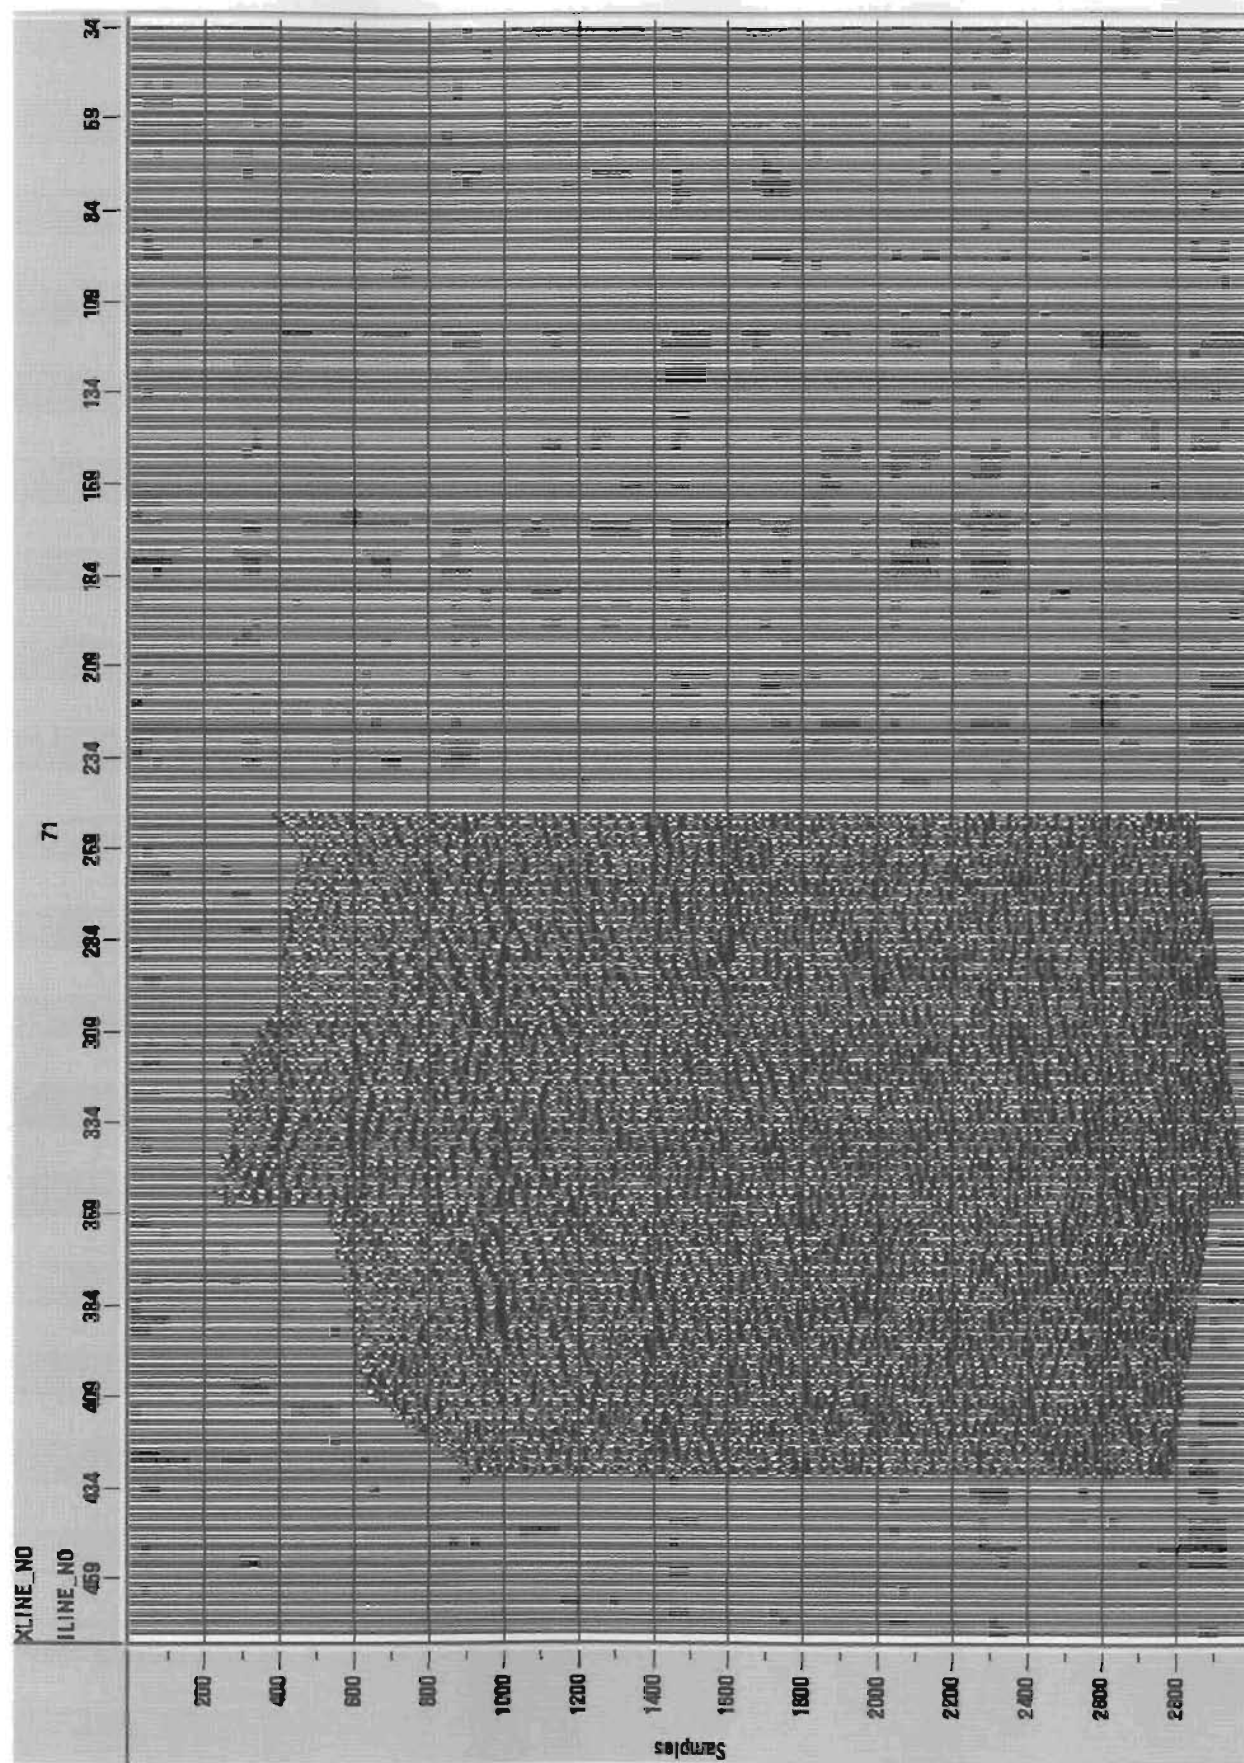 XLINE_NO
71
ILINE_NO
459 434 409 384 359 334 309 284 259 234 209 184 159 134 109 84 59 34
200
400
600
800
1000
1200
1400
Samples
1600
1800
2000
2200
2400
2600
2800